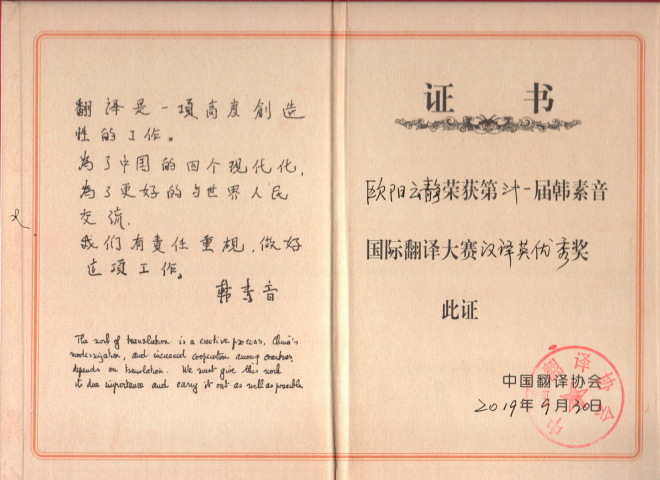 翻译是一項高度創造
性的工作。
為了中国的四个现代化,
為了更好的与世界人民
交流.
我们有責任重視,做好
这項工作。
韩素音
The work of translation is a creative process. China's
modernization, and increased cooperation among countries,
depends on translation. We must give this work
its due importance and carry it out as well as possible
证 书
欧阳云静荣获第卅一届韩素音
国际翻译大赛汉译英优秀奖
此证
中国翻译协会
2019年9月30日
中国翻译协会